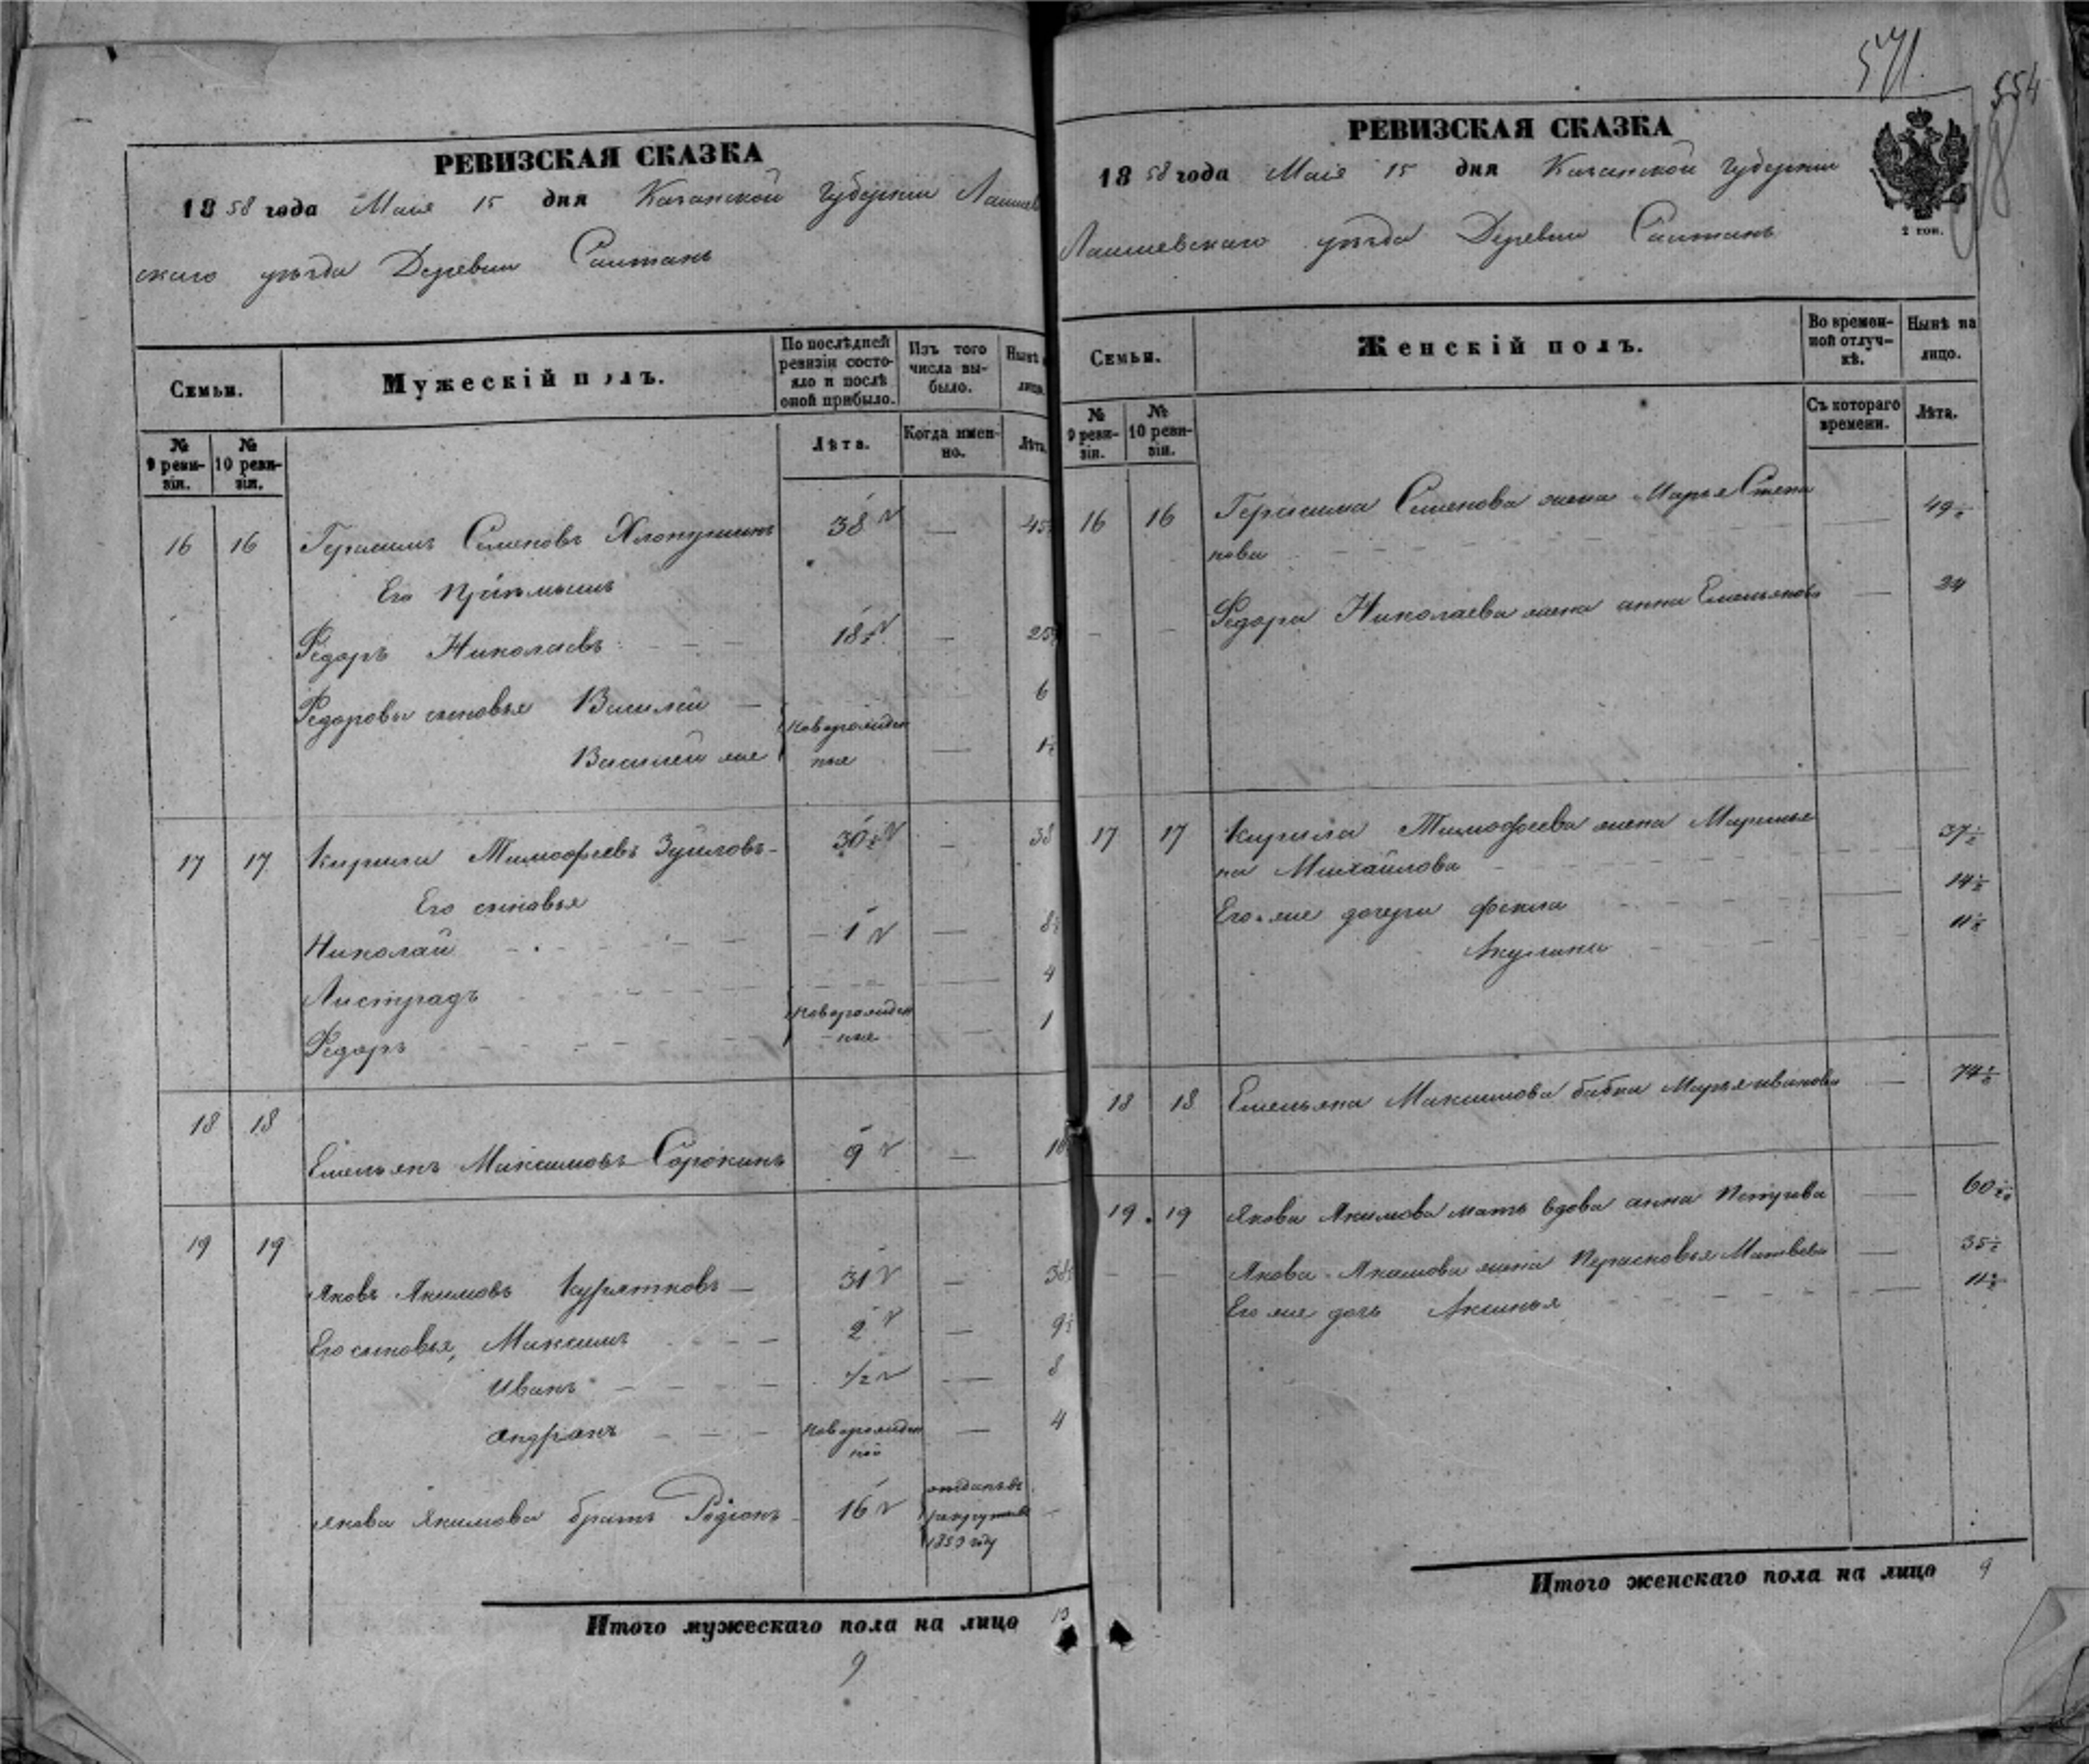 571.
554
РЕВИЗСКАЯ СКАЗКА
1858 года Маія 15 дня Казанской Губерніи Лаишев
скаго уѣзда Деревни Саитанъ
Семьи.
Мужескій полъ.
По послѣдней ревизіи состояло и послѣ оной прибыло.
Изъ того числа выбыло.
Нынѣ лицо.
№ 9 ревизіи.
№ 10 ревизіи.
Лѣта.
Когда именно.
Лѣта.
16 16 Герасимъ Семеновъ Хлопушинъ 38 — 45
Его Пріемышъ
Федоръ Николаевъ 18½ — 25
Федоровы сыновья Василей — 6
Новорожден
Василей же ные — 1½
17 17 Кирила Тимофѣевъ Зуиловъ 30½ — 38
Его сыновья
Николай 1 — 8½
Листрадъ — 4
Новорожден
Федоръ ные — 1
18 18
Емельянъ Максимовъ Сорокинъ 9 — 16
19 19
Яковъ Акимовъ Курятковъ 31 — 38½
Его сыновья, Максимъ 2 — 9½
Иванъ ½ — 8
Андрѣянъ Новорожден — 4
ной
Якова Акимова братъ Родіонъ 16 отданъ въ рекруты 1853 году —
Итого мужескаго пола на лицо 13
9
РЕВИЗСКАЯ СКАЗКА
1858 года Маія 15 дня Казанской Губерніи
Лаишевскаго уѣзда Деревни Саитанъ
2 коп.
Семьи.
Женскій полъ.
Во временной отлучкѣ.
Нынѣ на лицо.
№ 9 ревизіи.
№ 10 ревизіи.
Съ котораго времени.
Лѣта.
16 16 Герасима Семенова жена Марья Степа 49½
нова
Федора Николаева жена анна Емельянова — 24
17 17 Кирила Тимофеева жена Маримья 37½
на Михайлова
Его же дочери фекла 14½
Акулина 11½
18 18 Емельяна Максимова бабка Марья иванова — 74½
19 19 Якова Акимова мать вдова анна Петрова — 60½
Якова Акимова жена Перасковья Матвеева — 35½
Его же дочь Аксинья — 11½
Итого женскаго пола на лицо 9